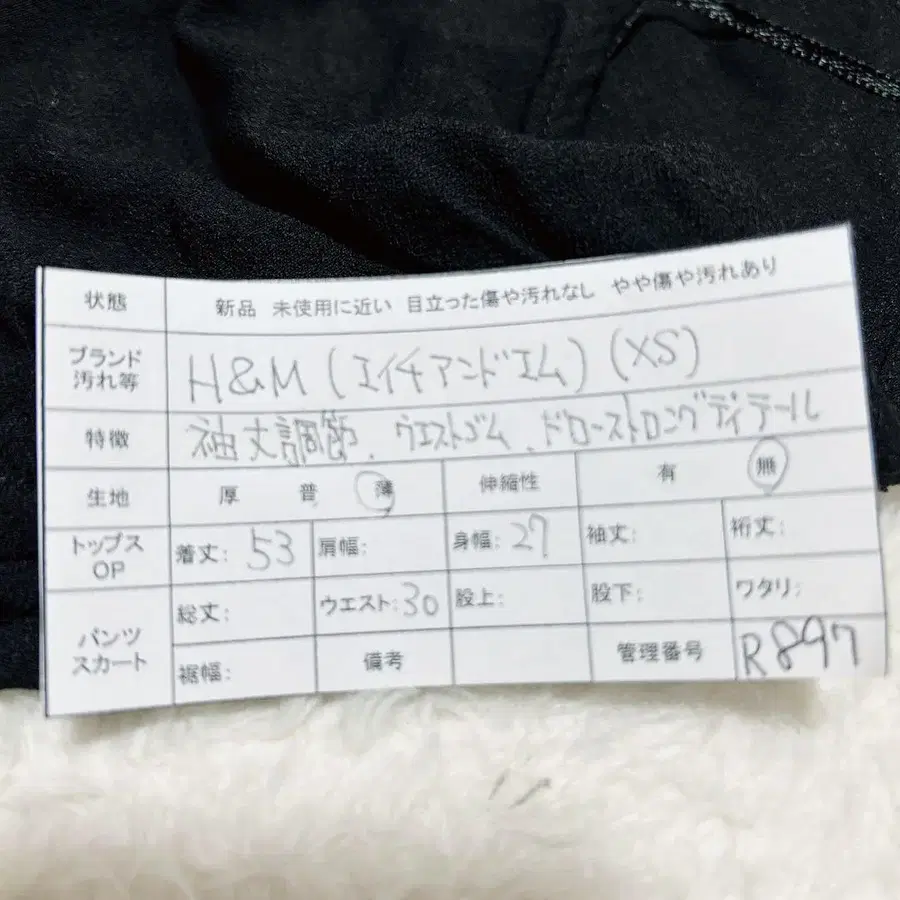 状態 新品 未使用に近い 目立った傷や汚れなし やや傷や汚れあり
ブランド
汚れ等 H&M (エイチアンドエム) (XS)
特徴 袖丈調節、ウエストゴム、ドローストロングディテール
生地 厚 普 薄 伸縮性 有 無
トップス
OP 着丈: 53 肩幅: 身幅: 27 袖丈: 裄丈:
パンツ
スカート 総丈: ウエスト: 30 股上: 股下: ワタリ:
裾幅: 備考 管理番号 R897